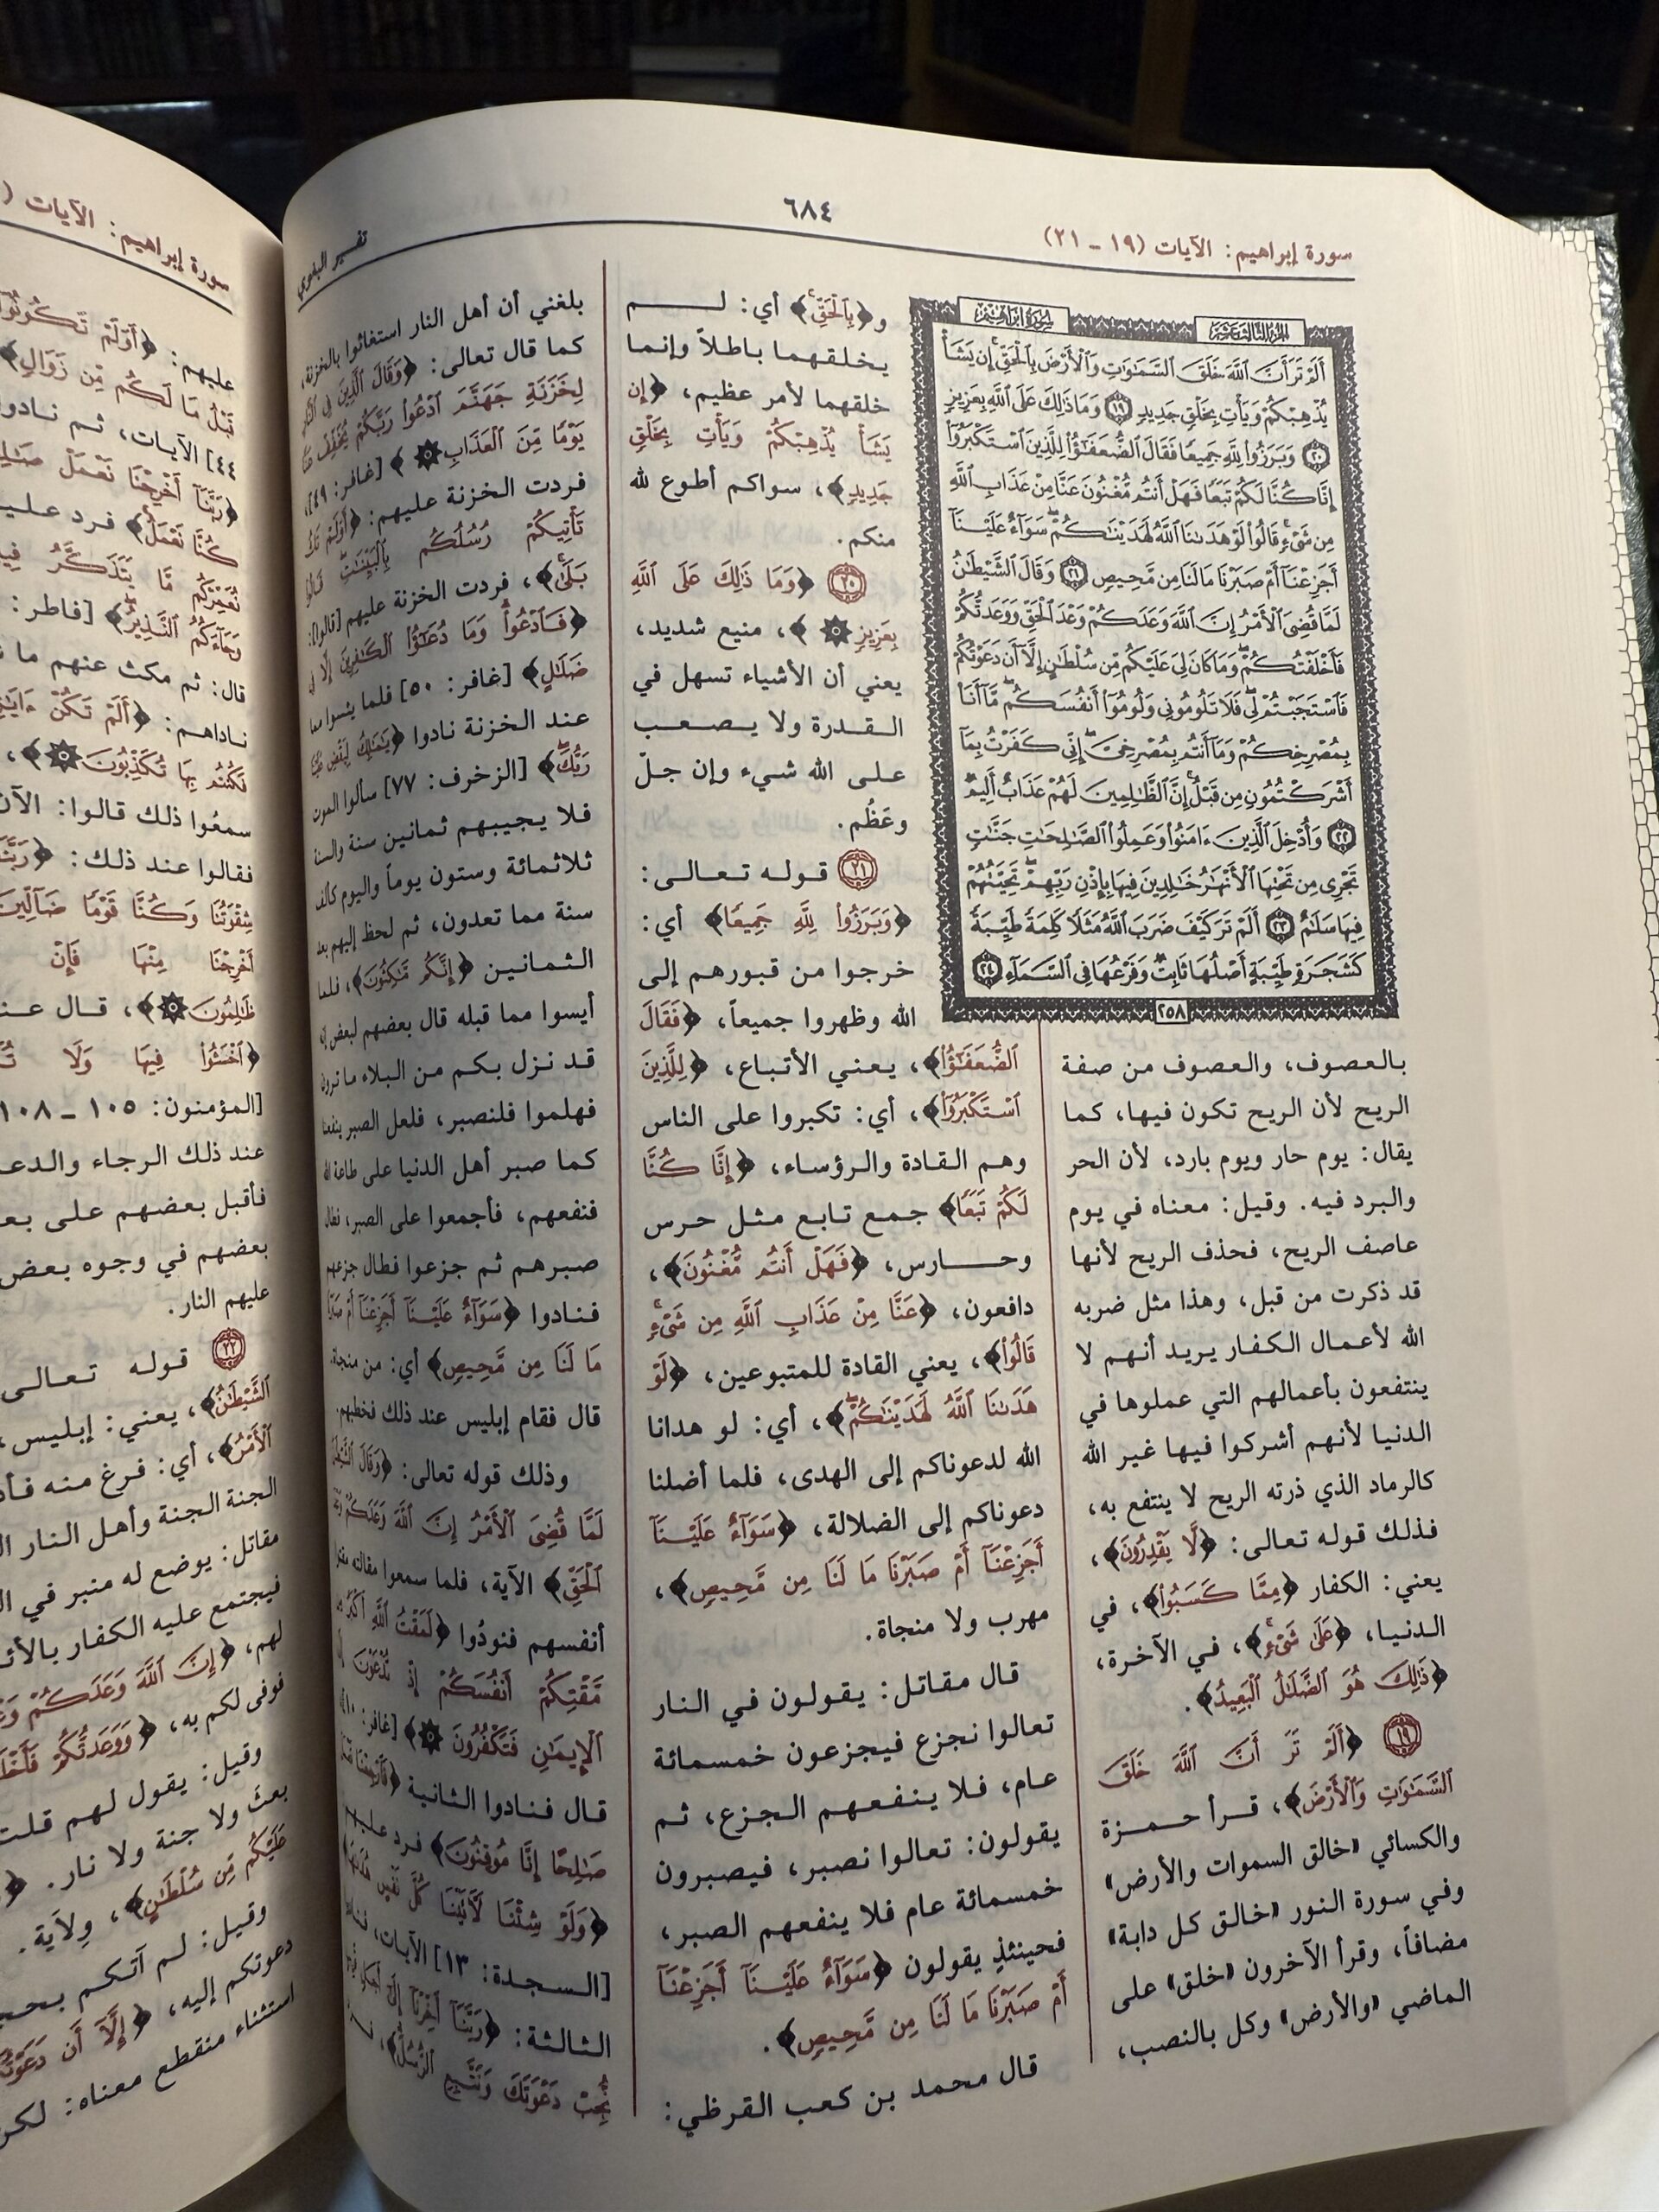 سورة إبراهيم: الآيات (١٩ - ٢١)
٦٨٤
تفسير البغوي
الجزء الثالث عشر
سورة إبراهيم
أَلَمْ تَرَ أَنَّ اللَّهَ خَلَقَ السَّمَٰوَٰتِ وَالْأَرْضَ بِالْحَقِّ إِن يَشَأْ
يُذْهِبْكُمْ وَيَأْتِ بِخَلْقٍ جَدِيدٍ ١٩ وَمَا ذَٰلِكَ عَلَى اللَّهِ بِعَزِيزٍ
٢٠ وَبَرَزُوا لِلَّهِ جَمِيعًا فَقَالَ الضُّعَفَٰٓؤُا لِلَّذِينَ اسْتَكْبَرُوٓا
إِنَّا كُنَّا لَكُمْ تَبَعًا فَهَلْ أَنتُم مُّغْنُونَ عَنَّا مِنْ عَذَابِ اللَّهِ
مِن شَىْءٍ قَالُوا لَوْ هَدَىٰنَا اللَّهُ لَهَدَيْنَٰكُمْ سَوَآءٌ عَلَيْنَآ
أَجَزِعْنَآ أَمْ صَبَرْنَا مَا لَنَا مِن مَّحِيصٍ ٢١ وَقَالَ الشَّيْطَٰنُ
لَمَّا قُضِىَ الْأَمْرُ إِنَّ اللَّهَ وَعَدَكُمْ وَعْدَ الْحَقِّ وَوَعَدتُّكُمْ
فَأَخْلَفْتُكُمْ وَمَا كَانَ لِىَ عَلَيْكُم مِّن سُلْطَٰنٍ إِلَّآ أَن دَعَوْتُكُمْ
فَاسْتَجَبْتُمْ لِى فَلَا تَلُومُونِى وَلُومُوٓا أَنفُسَكُم مَّآ أَنَا۠
بِمُصْرِخِكُمْ وَمَآ أَنتُم بِمُصْرِخِىَّ إِنِّى كَفَرْتُ بِمَآ
أَشْرَكْتُمُونِ مِن قَبْلُ إِنَّ الظَّٰلِمِينَ لَهُمْ عَذَابٌ أَلِيمٌ
٢٢ وَأُدْخِلَ الَّذِينَ ءَامَنُوا وَعَمِلُوا الصَّٰلِحَٰتِ جَنَّٰتٍ
تَجْرِى مِن تَحْتِهَا الْأَنْهَٰرُ خَٰلِدِينَ فِيهَا بِإِذْنِ رَبِّهِمْ تَحِيَّتُهُمْ
فِيهَا سَلَٰمٌ ٢٣ أَلَمْ تَرَ كَيْفَ ضَرَبَ اللَّهُ مَثَلًا كَلِمَةً طَيِّبَةً
كَشَجَرَةٍ طَيِّبَةٍ أَصْلُهَا ثَابِتٌ وَفَرْعُهَا فِى السَّمَآءِ ٢٤
٢٥٨
بالعصوف، والعصوف من صفة
الريح لأن الريح تكون فيها، كما
يقال: يوم حار ويوم بارد، لأن الحر
والبرد فيه. وقيل: معناه في يوم
عاصف الريح، فحذف الريح لأنها
قد ذكرت من قبل، وهذا مثل ضربه
الله لأعمال الكفار يريد أنهم لا
ينتفعون بأعمالهم التي عملوها في
الدنيا لأنهم أشركوا فيها غير الله
كالرماد الذي ذرته الريح لا ينتفع به،
فذلك قوله تعالى: ﴿لَّا يَقْدِرُونَ﴾،
يعني: الكفار ﴿مِمَّا كَسَبُوا﴾، في
الدنيا، ﴿عَلَىٰ شَىْءٍ﴾، في الآخرة،
﴿ذَٰلِكَ هُوَ الضَّلَٰلُ الْبَعِيدُ﴾.
١٩ ﴿أَلَمْ تَرَ أَنَّ اللَّهَ خَلَقَ
السَّمَٰوَٰتِ وَالْأَرْضَ﴾، قرأ حمزة
والكسائي «خالق السموات والأرض»
وفي سورة النور «خالق كل دابة»
مضافاً، وقرأ الآخرون «خلق» على
الماضي «والأرض» وكل بالنصب،
و﴿بِالْحَقِّ﴾ أي: لم
يخلقهما باطلاً وإنما
خلقهما لأمر عظيم، ﴿إِن
يَشَأْ يُذْهِبْكُمْ وَيَأْتِ بِخَلْقٍ
جَدِيدٍ﴾، سواكم أطوع لله
منكم.
٢٠ ﴿وَمَا ذَٰلِكَ عَلَى اللَّهِ
بِعَزِيزٍ﴾، منيع شديد،
يعني أن الأشياء تسهل في
القدرة ولا يصعب
على الله شيء وإن جلّ
وعَظُم.
٢١ قوله تعالى:
﴿وَبَرَزُوا لِلَّهِ جَمِيعًا﴾ أي:
خرجوا من قبورهم إلى
الله وظهروا جميعاً، ﴿فَقَالَ
الضُّعَفَٰٓؤُا﴾، يعني الأتباع، ﴿لِلَّذِينَ
اسْتَكْبَرُوٓا﴾، أي: تكبروا على الناس
وهم القادة والرؤساء، ﴿إِنَّا كُنَّا
لَكُمْ تَبَعًا﴾ جمع تابع مثل حرس
وحارس، ﴿فَهَلْ أَنتُم مُّغْنُونَ﴾،
دافعون، ﴿عَنَّا مِنْ عَذَابِ اللَّهِ مِن شَىْءٍ
قَالُوا﴾، يعني القادة للمتبوعين، ﴿لَوْ
هَدَىٰنَا اللَّهُ لَهَدَيْنَٰكُمْ﴾، أي: لو هدانا
الله لدعوناكم إلى الهدى، فلما أضلنا
دعوناكم إلى الضلالة، ﴿سَوَآءٌ عَلَيْنَآ
أَجَزِعْنَآ أَمْ صَبَرْنَا مَا لَنَا مِن مَّحِيصٍ﴾،
مهرب ولا منجاة.
قال مقاتل: يقولون في النار
تعالوا نجزع فيجزعون خمسمائة
عام، فلا ينفعهم الجزع، ثم
يقولون: تعالوا نصبر، فيصبرون
خمسمائة عام فلا ينفعهم الصبر،
فحينئذٍ يقولون ﴿سَوَآءٌ عَلَيْنَآ أَجَزِعْنَآ
أَمْ صَبَرْنَا مَا لَنَا مِن مَّحِيصٍ﴾.
قال محمد بن كعب القرظي:
بلغني أن أهل النار استغاثوا بالخزنة،
كما قال تعالى: ﴿وَقَالَ الَّذِينَ فِى النَّارِ
لِخَزَنَةِ جَهَنَّمَ ادْعُوا رَبَّكُمْ يُخَفِّفْ عَنَّا
يَوْمًا مِّنَ الْعَذَابِ﴾ [غافر: ٤٩]،
فردت الخزنة عليهم: ﴿أَوَلَمْ تَكُ
تَأْتِيكُمْ رُسُلُكُم بِالْبَيِّنَٰتِ قَالُوا
بَلَىٰ﴾، فردت الخزنة عليهم [قالوا]:
﴿فَادْعُوا وَمَا دُعَٰٓؤُا الْكَٰفِرِينَ إِلَّا فِى
ضَلَٰلٍ﴾ [غافر: ٥٠] فلما يئسوا مما
عند الخزنة نادوا ﴿يَٰمَٰلِكُ لِيَقْضِ عَلَيْنَا
رَبُّكَ﴾ [الزخرف: ٧٧] سألوا الموت
فلا يجيبهم ثمانين سنة والسنة
ثلاثمائة وستون يوماً واليوم كألف
سنة مما تعدون، ثم لحظ إليهم بعد
الثمانين ﴿إِنَّكُم مَّٰكِثُونَ﴾، فلما
أيسوا مما قبله قال بعضهم لبعض إنه
قد نزل بكم من البلاء ما ترون
فهلموا فلنصبر، فلعل الصبر ينفعنا
كما صبر أهل الدنيا على طاعة الله
فنفعهم، فأجمعوا على الصبر، فطال
صبرهم ثم جزعوا فطال جزعهم
فنادوا ﴿سَوَآءٌ عَلَيْنَآ أَجَزِعْنَآ أَمْ صَبَرْنَا
مَا لَنَا مِن مَّحِيصٍ﴾ أي: من منجاة.
قال فقام إبليس عند ذلك فخطبهم.
وذلك قوله تعالى: ﴿وَقَالَ الشَّيْطَٰنُ
لَمَّا قُضِىَ الْأَمْرُ إِنَّ اللَّهَ وَعَدَكُمْ وَعْدَ
الْحَقِّ﴾ الآية، فلما سمعوا مقالته مقتوا
أنفسهم فنودُوا ﴿لَمَقْتُ اللَّهِ أَكْبَرُ مِن
مَّقْتِكُمْ أَنفُسَكُمْ إِذْ تُدْعَوْنَ إِلَى
الْإِيمَٰنِ فَتَكْفُرُونَ﴾ [غافر: ١٠]
قال فنادوا الثانية ﴿فَارْجِعْنَا نَعْمَلْ
صَٰلِحًا إِنَّا مُوقِنُونَ﴾ فرد عليهم
﴿وَلَوْ شِئْنَا لَءَاتَيْنَا كُلَّ نَفْسٍ هُدَىٰهَا﴾
[السجدة: ١٣] الآيات،
الثالثة: ﴿رَبَّنَآ أَخِّرْنَآ إِلَىٰٓ أَجَلٍ قَرِيبٍ
نُّجِبْ دَعْوَتَكَ وَنَتَّبِعِ الرُّسُلَ﴾،
سورة إبراهيم: الآيات (
عليهم: ﴿أَوَلَمْ تَكُونُوٓا
قَبْلُ مَا لَكُم مِّن زَوَالٍ﴾
٤٤] الآيات، ثم نادوا
﴿رَبَّنَآ أَخْرِجْنَا نَعْمَلْ صَٰلِحًا
كُنَّا نَعْمَلُ﴾ فرد عليهم
نُعَمِّرْكُم مَّا يَتَذَكَّرُ فِيهِ
وَجَآءَكُمُ النَّذِيرُ﴾ [فاطر:
قال: ثم مكث عنهم ما
ناداهم: ﴿أَلَمْ تَكُنْ ءَايَٰتِى
فَكُنتُم بِهَا تُكَذِّبُونَ﴾،
سمعُوا ذلك قالوا: الآن
فقالوا عند ذلك: ﴿رَبَّنَا
شِقْوَتُنَا وَكُنَّا قَوْمًا ضَآلِّينَ
أَخْرِجْنَا مِنْهَا فَإِنْ
ظَٰلِمُونَ﴾، قال عند
﴿اخْسَـُٔوا فِيهَا وَلَا
[المؤمنون: ١٠٥ - ١٠٨
عند ذلك الرجاء والدعاء
فأقبل بعضهم على بعض
بعضهم في وجوه بعض
عليهم النار.
٢٢ قوله تعالى
الشَّيْطَٰنُ﴾، يعني: إبليس،
الْأَمْرُ﴾، أي: فرغ منه
الجنة الجنة وأهل النار
مقاتل: يوضع له منبر في
فيجتمع عليه الكفار
لهم، ﴿إِنَّ اللَّهَ وَعَدَكُمْ
فوفى لكم به، ﴿وَوَعَدتُّكُمْ
وقيل: يقول لهم قلت
بعثَ ولا جنة ولا نار.
عَلَيْكُم مِّن سُلْطَٰنٍ﴾، وِلاَية.
وقيل: لم آتكم
دعوتكم إليه، ﴿إِلَّآ أَن دَعَوْتُكُمْ
استثناء منقطع معناه: لكن